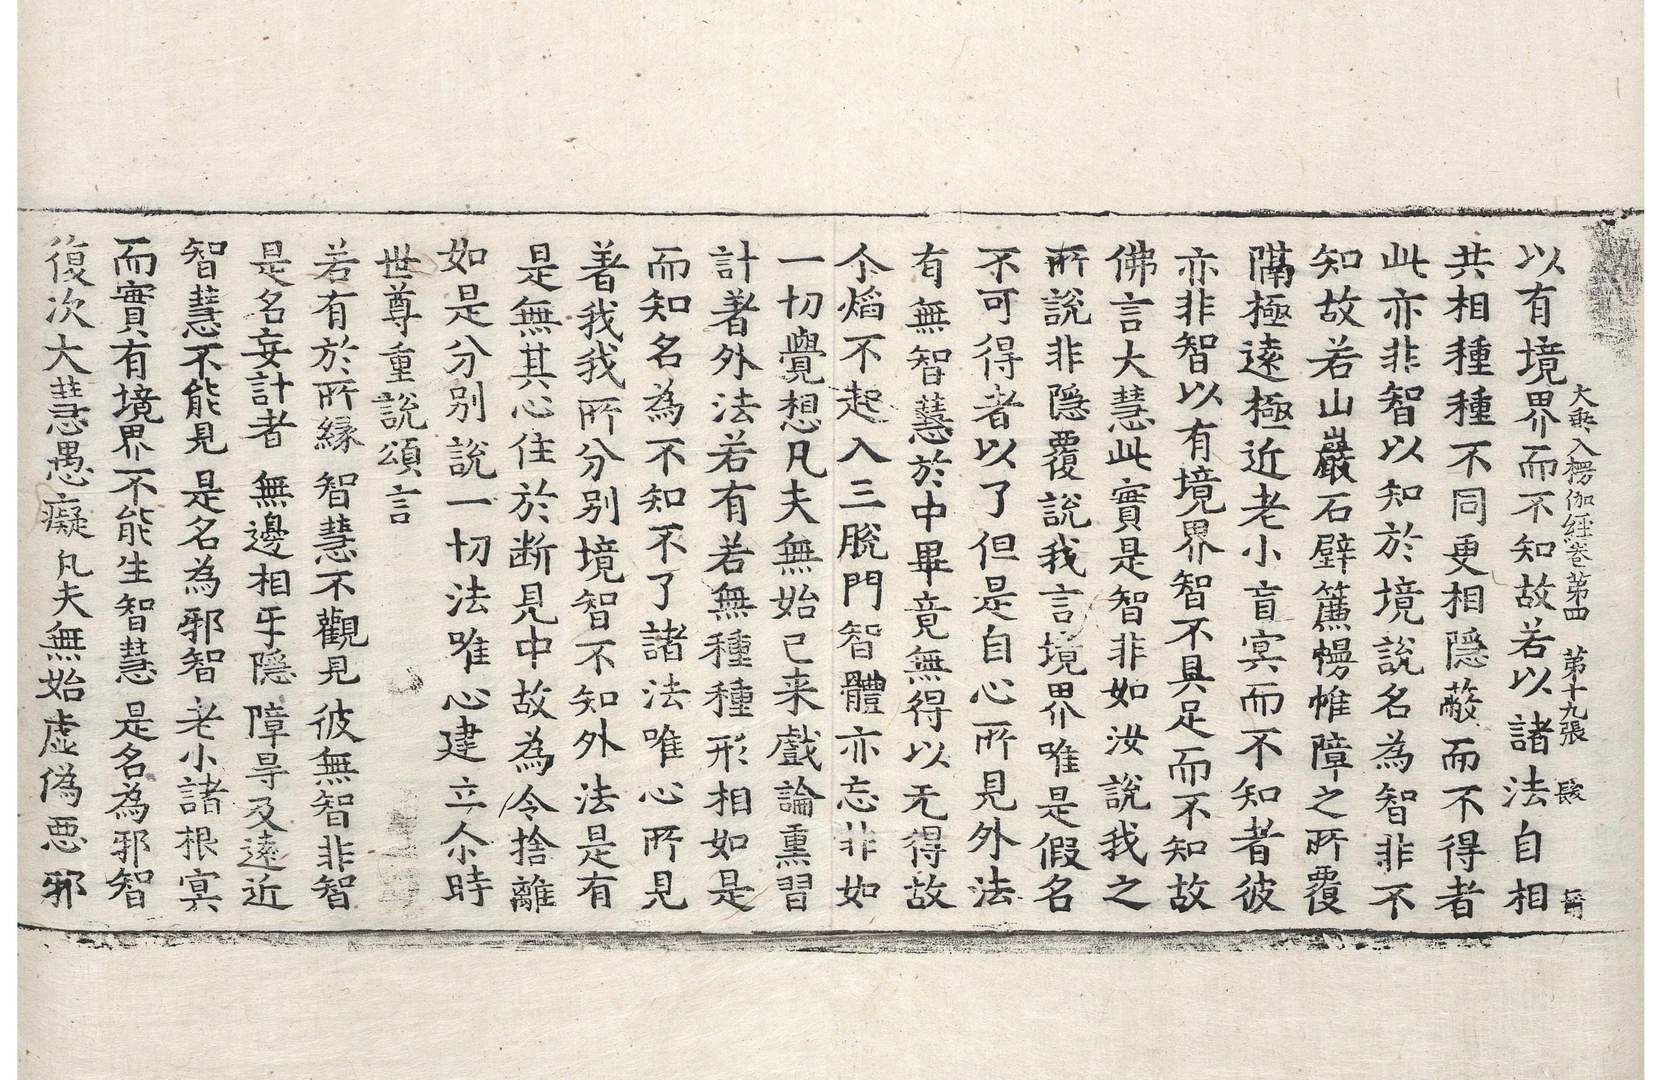 大乘入楞伽經卷第四　第十九張　駿
以有境界而不知故若以諸法自相
共相種種不同更相隱蔽而不得者
此亦非智以知於境說名為智非不
知故若山巖石壁簾幔帷障之所覆
隔極遠極近老小盲冥而不知者彼
亦非智以有境界智不具足而不知故
佛言大慧此實是智非如汝說我之
所說非隱覆說我言境界唯是假名
不可得者以了但是自心所見外法
有無智慧於中畢竟無得以无得故
尒焰不起入三脫門智體亦忘非如
一切覺想凡夫無始已来戲論熏習
計著外法若有若無種種形相如是
而知名為不知不了諸法唯心所見
著我我所分別境智不知外法是有
是無其心住於断見中故為令捨離
如是分別說一切法唯心建立尒時
世尊重說頌言
若有於所縁　智慧不觀見　彼無智非智
是名妄計者　無邊相㸦隱　障㝵及遠近
智慧不能見　是名為邪智　老小諸根冥
而實有境界　不能生智慧　是名為邪智
復次大慧愚癡凡夫無始虛偽惡邪